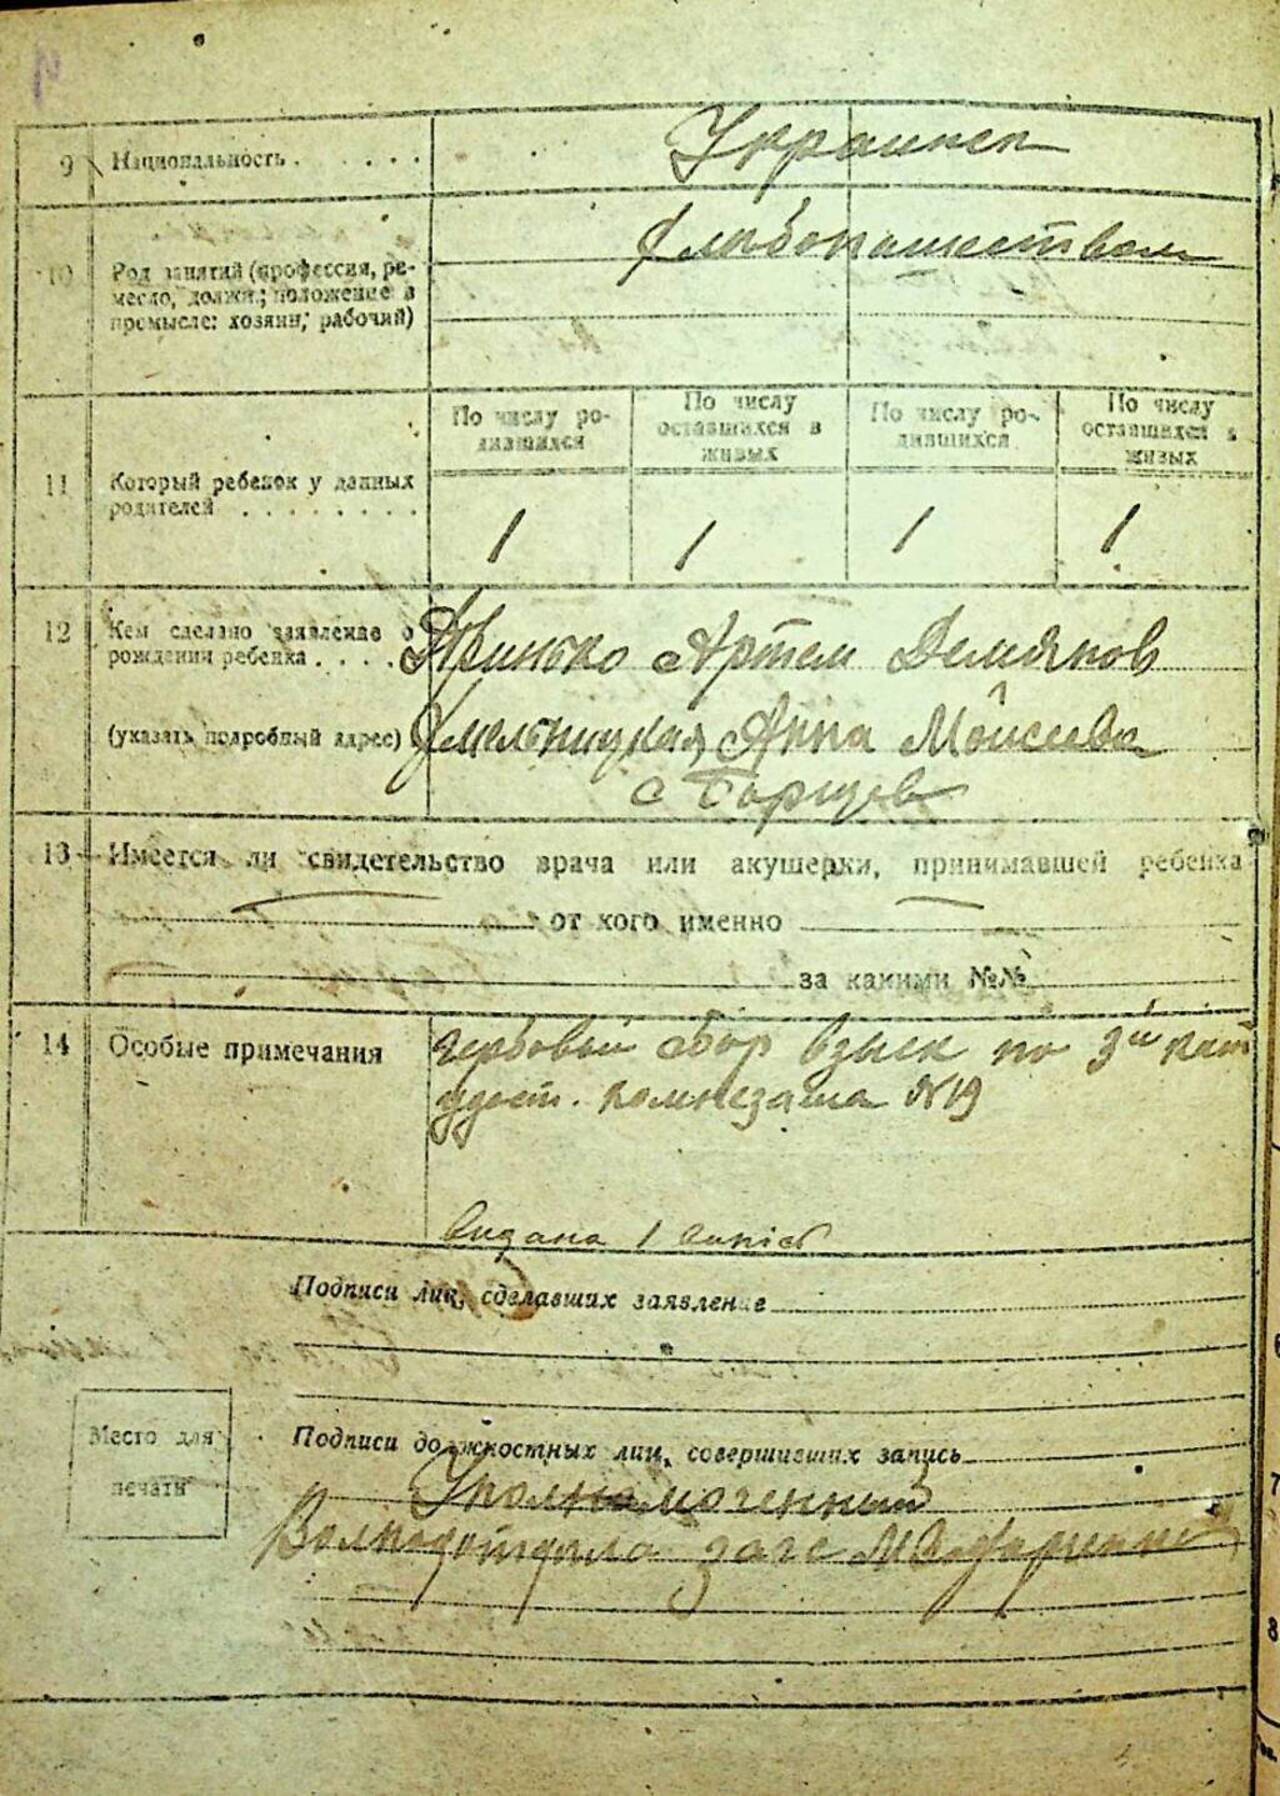 9 Национальность . . . . . Украинск
10 Род занятий (профессия, ре-
месло, должн.; положение в
промысле: хозяин; рабочий)
Хлебопашеством
По числу ро-
дившихся
По числу
оставшихся в
живых
По числу ро-
дившихся
По числу
оставшихся в
живых
11 Который ребенок у данных
родителей . . . . . . . .
1 1 1 1
12 Кем сделано заявление о
рождении ребенка . . . .
Артем Демянов
(указать подробный адрес) Хмельницкая Анна Моисеева
с Борщев
13 Имеется ли свидетельство врача или акушерки, принимавшей ребенка
от кого именно
за какими №№
14 Особые примечания
Гербовый сбор взыск по 3й кат
удост. комнезама №19
Видана 1 випісь
Подписи лиц, сделавших заявление
Место для
печати
Подписи должностных лиц, совершивших запись
Уполномоченный
загс